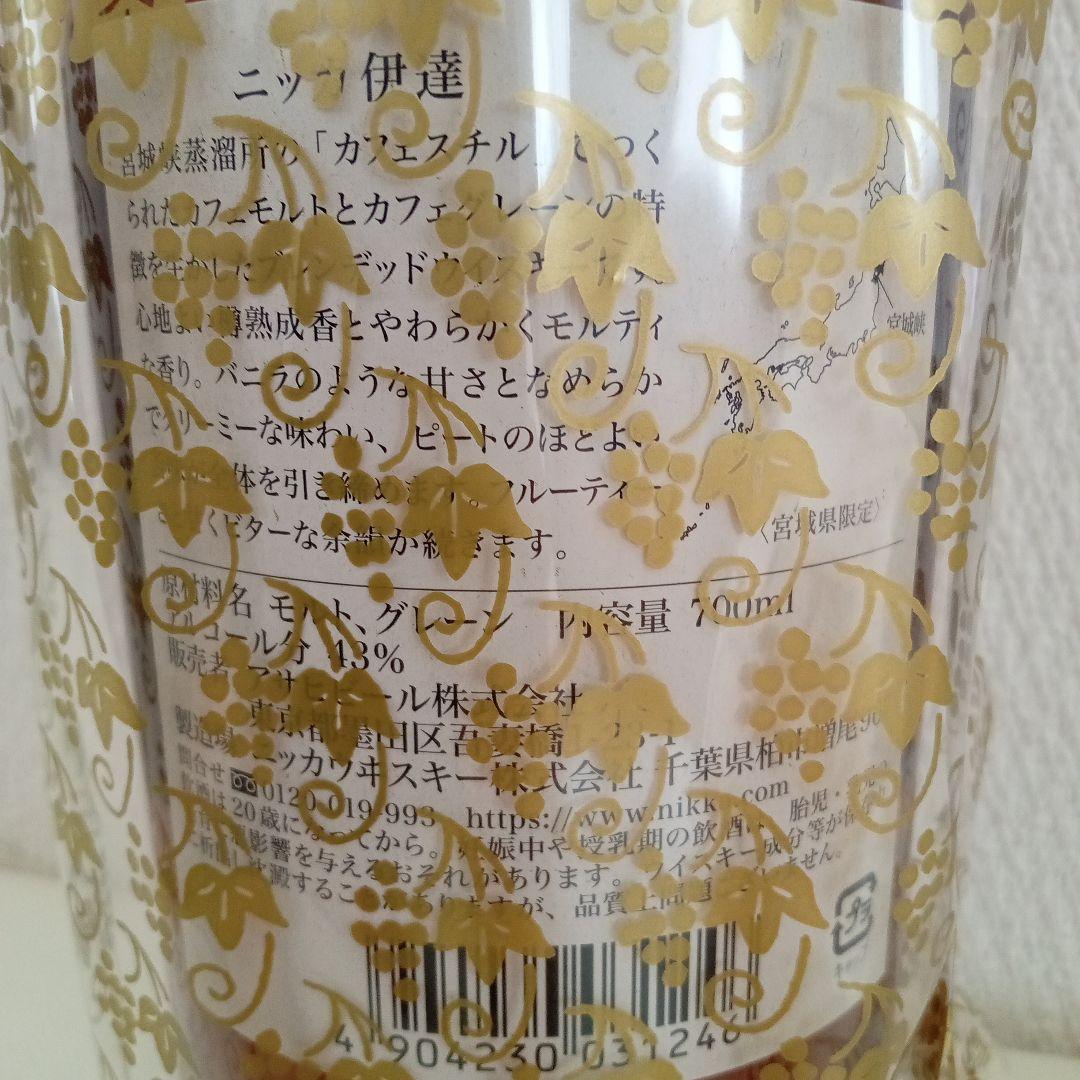 ニッカ 伊達
宮城峡蒸溜所の「カフェスチル」でつく
られたカフェモルトとカフェグレーンの特
徴を生かしたブレンデッドウイスキーです。
心地よい樽熟成香とやわらかくモルティ
な香り。バニラのような甘さとなめらか
でクリーミーな味わい、ピートのほどよい
体を引き締めます。フルーティー
くビターな余韻が続きます。
宮城峡
〈宮城県限定〉
原材料名 モルト、グレーン 内容量 700ml
アルコール分 43%
販売者 アサヒビール株式会社
東京都墨田区吾妻橋
製造場 ニッカウヰスキー株式会社 千葉県柏市増尾
問合せ 0120-019-993 https://www.nikka.com
飲酒は20歳になってから。妊娠中や授乳期の飲酒は、胎児・
影響を与えるおそれがあります。ウイスキー成分等が
沈澱することがありますが、品質上問題ありません。
4 904230 031246